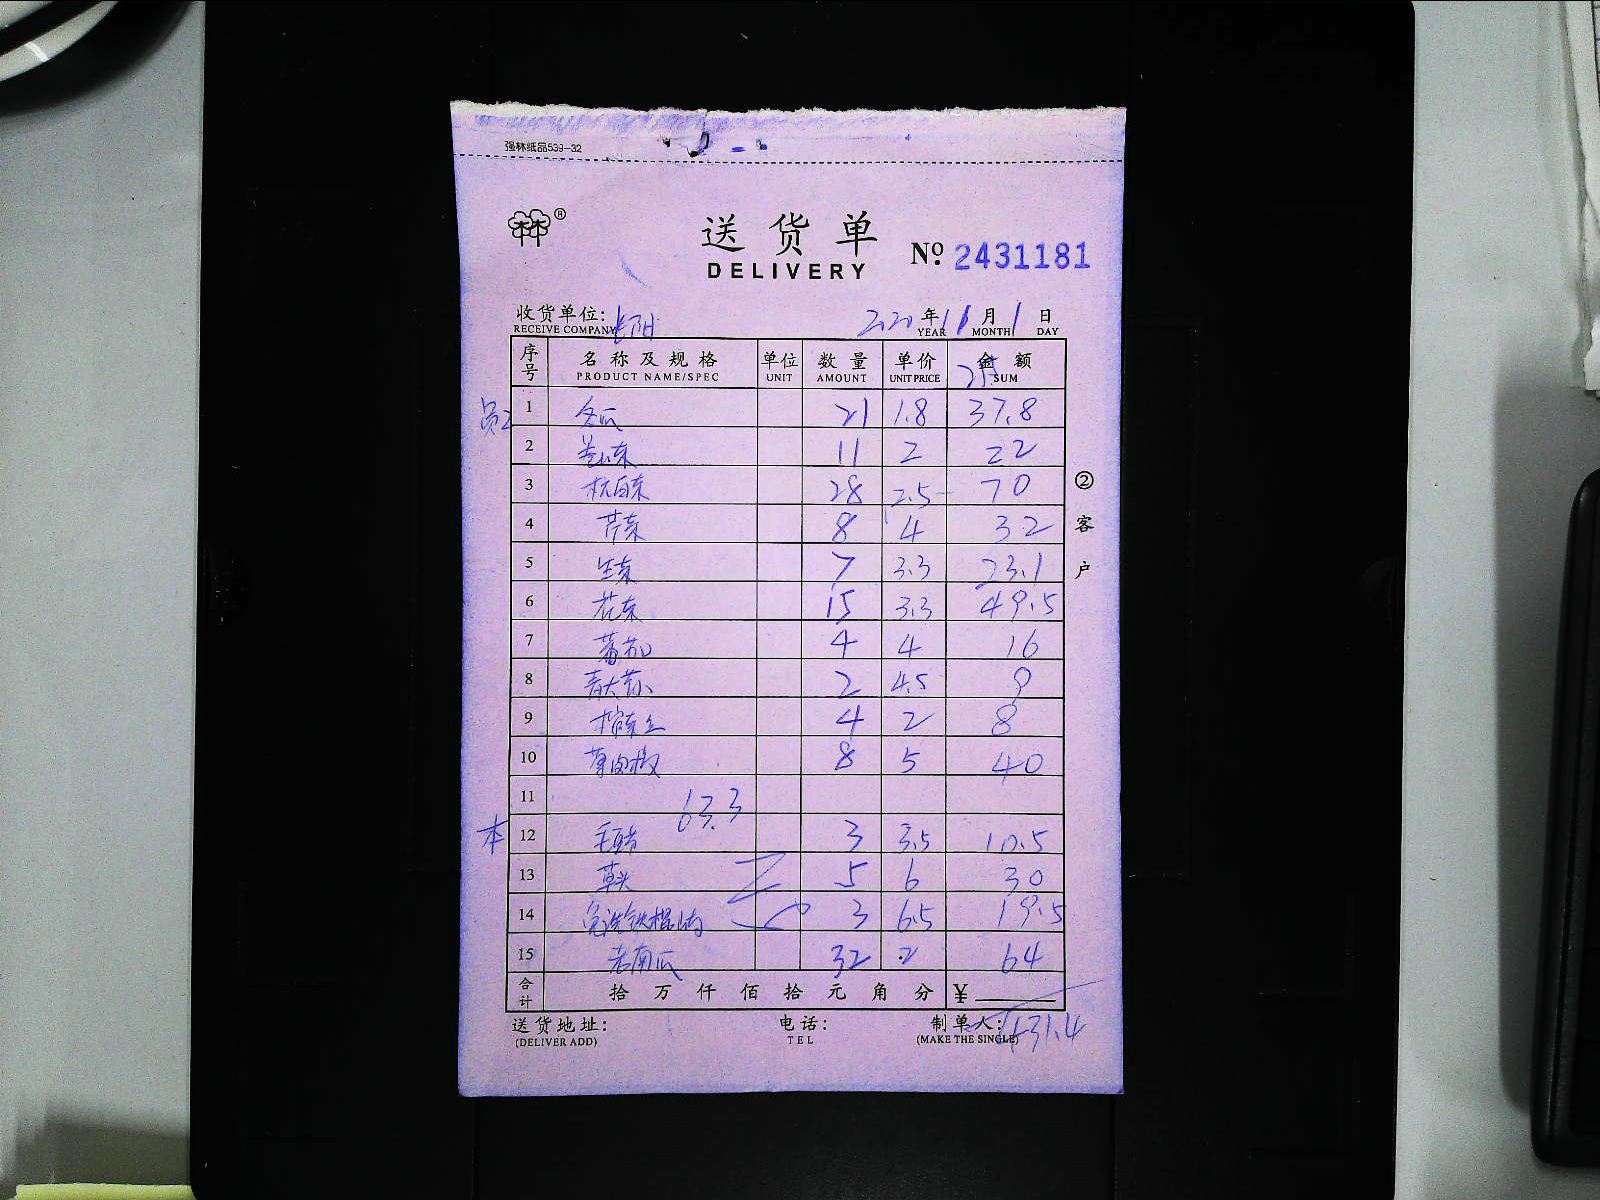 强林纸品539-32
®
送货单
DELIVERY
№ 2431181
收货单位:
RECEIVE COMPANY
2020年11月1日
YEAR MONTH DAY
序号 名称及规格 单位 数量 单价 金额
PRODUCT NAME/SPEC UNIT AMOUNT UNIT PRICE SUM
1 冬瓜 21 1.8 37.8
2 卷心菜 11 2 22
3 杭白菜 28 2.5 70
4 芹菜 8 4 32
5 生菜 7 3.3 23.1
6 花菜 15 3.3 49.5
7 蕃茄 4 4 16
8 2 4.5 9
9 4 2 8
10 薄皮椒 8 5 40
11 63.3
本 12 毛豆 3 3.5 10.5
13 草头 5 6 30
14 免洗铁棍山药 3 6.5 19.5
15 老南瓜 32 2 64
合计 拾 万 仟 佰 拾 元 角 分 ¥
431.4
②客户
送货地址: 电话: 制单人:
(DELIVER ADD) TEL (MAKE THE SINGLE)